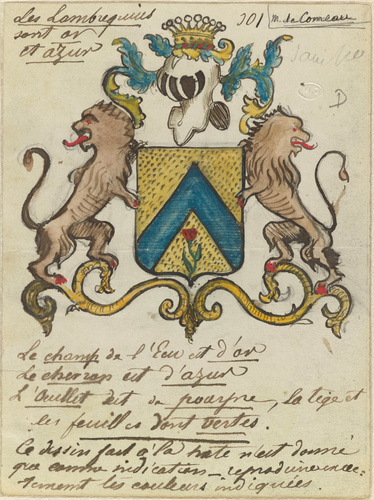 Les Lambrequins
sont or
et azur
301
M. de Comeau
D
Le champ de l'Ecu est d'or
Le chevron est d'azur
L'Œuillet est de pourpre, la tige et
les feuilles sont vertes.
Ce dessin fait à la hate n'est donné
que comme indication — reproduire exac-
tement les couleurs indiquées.